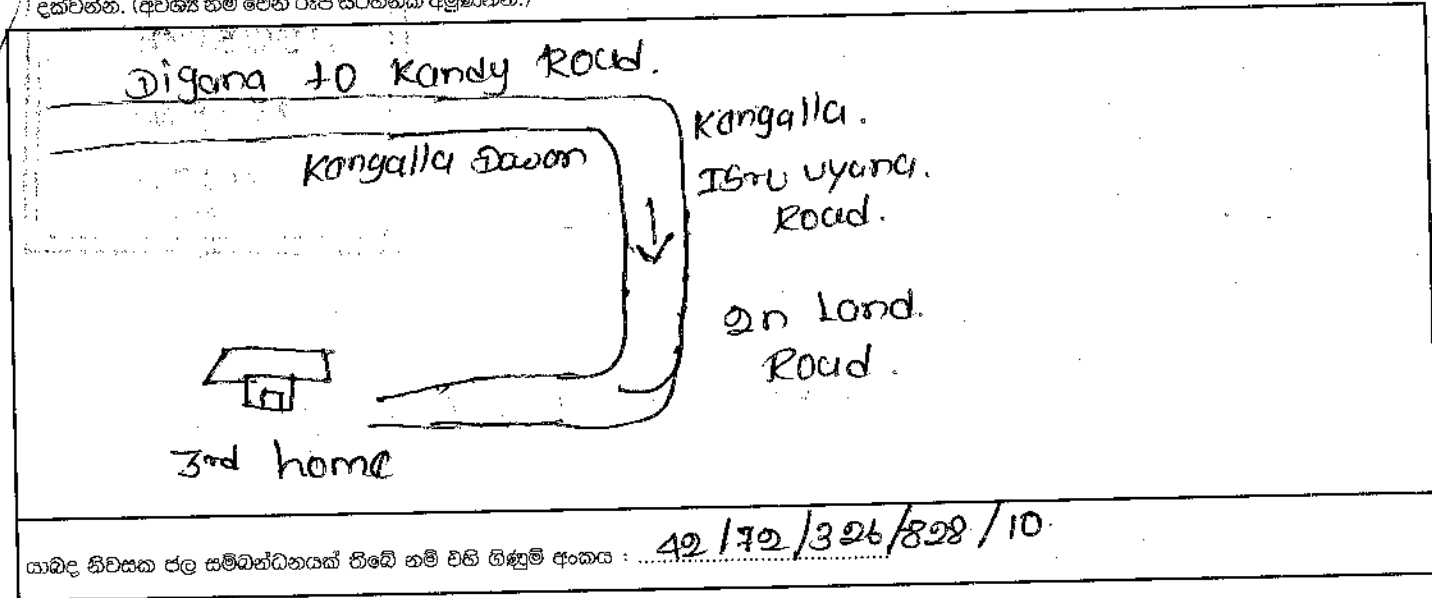 දක්වන්න. (අවශ්‍ය නම් වෙන රූප සටහනක් අමුණන්න.)
Digana to Kandy Road.
Kangalla
Kangalla.
ISru uyana.
Road.
2n Land.
Road.
3rd home
යාබද නිවසක ජල සම්බන්ධනයක් තිබේ නම් එහි ගිණුම් අංකය : 42/72/326/828/10